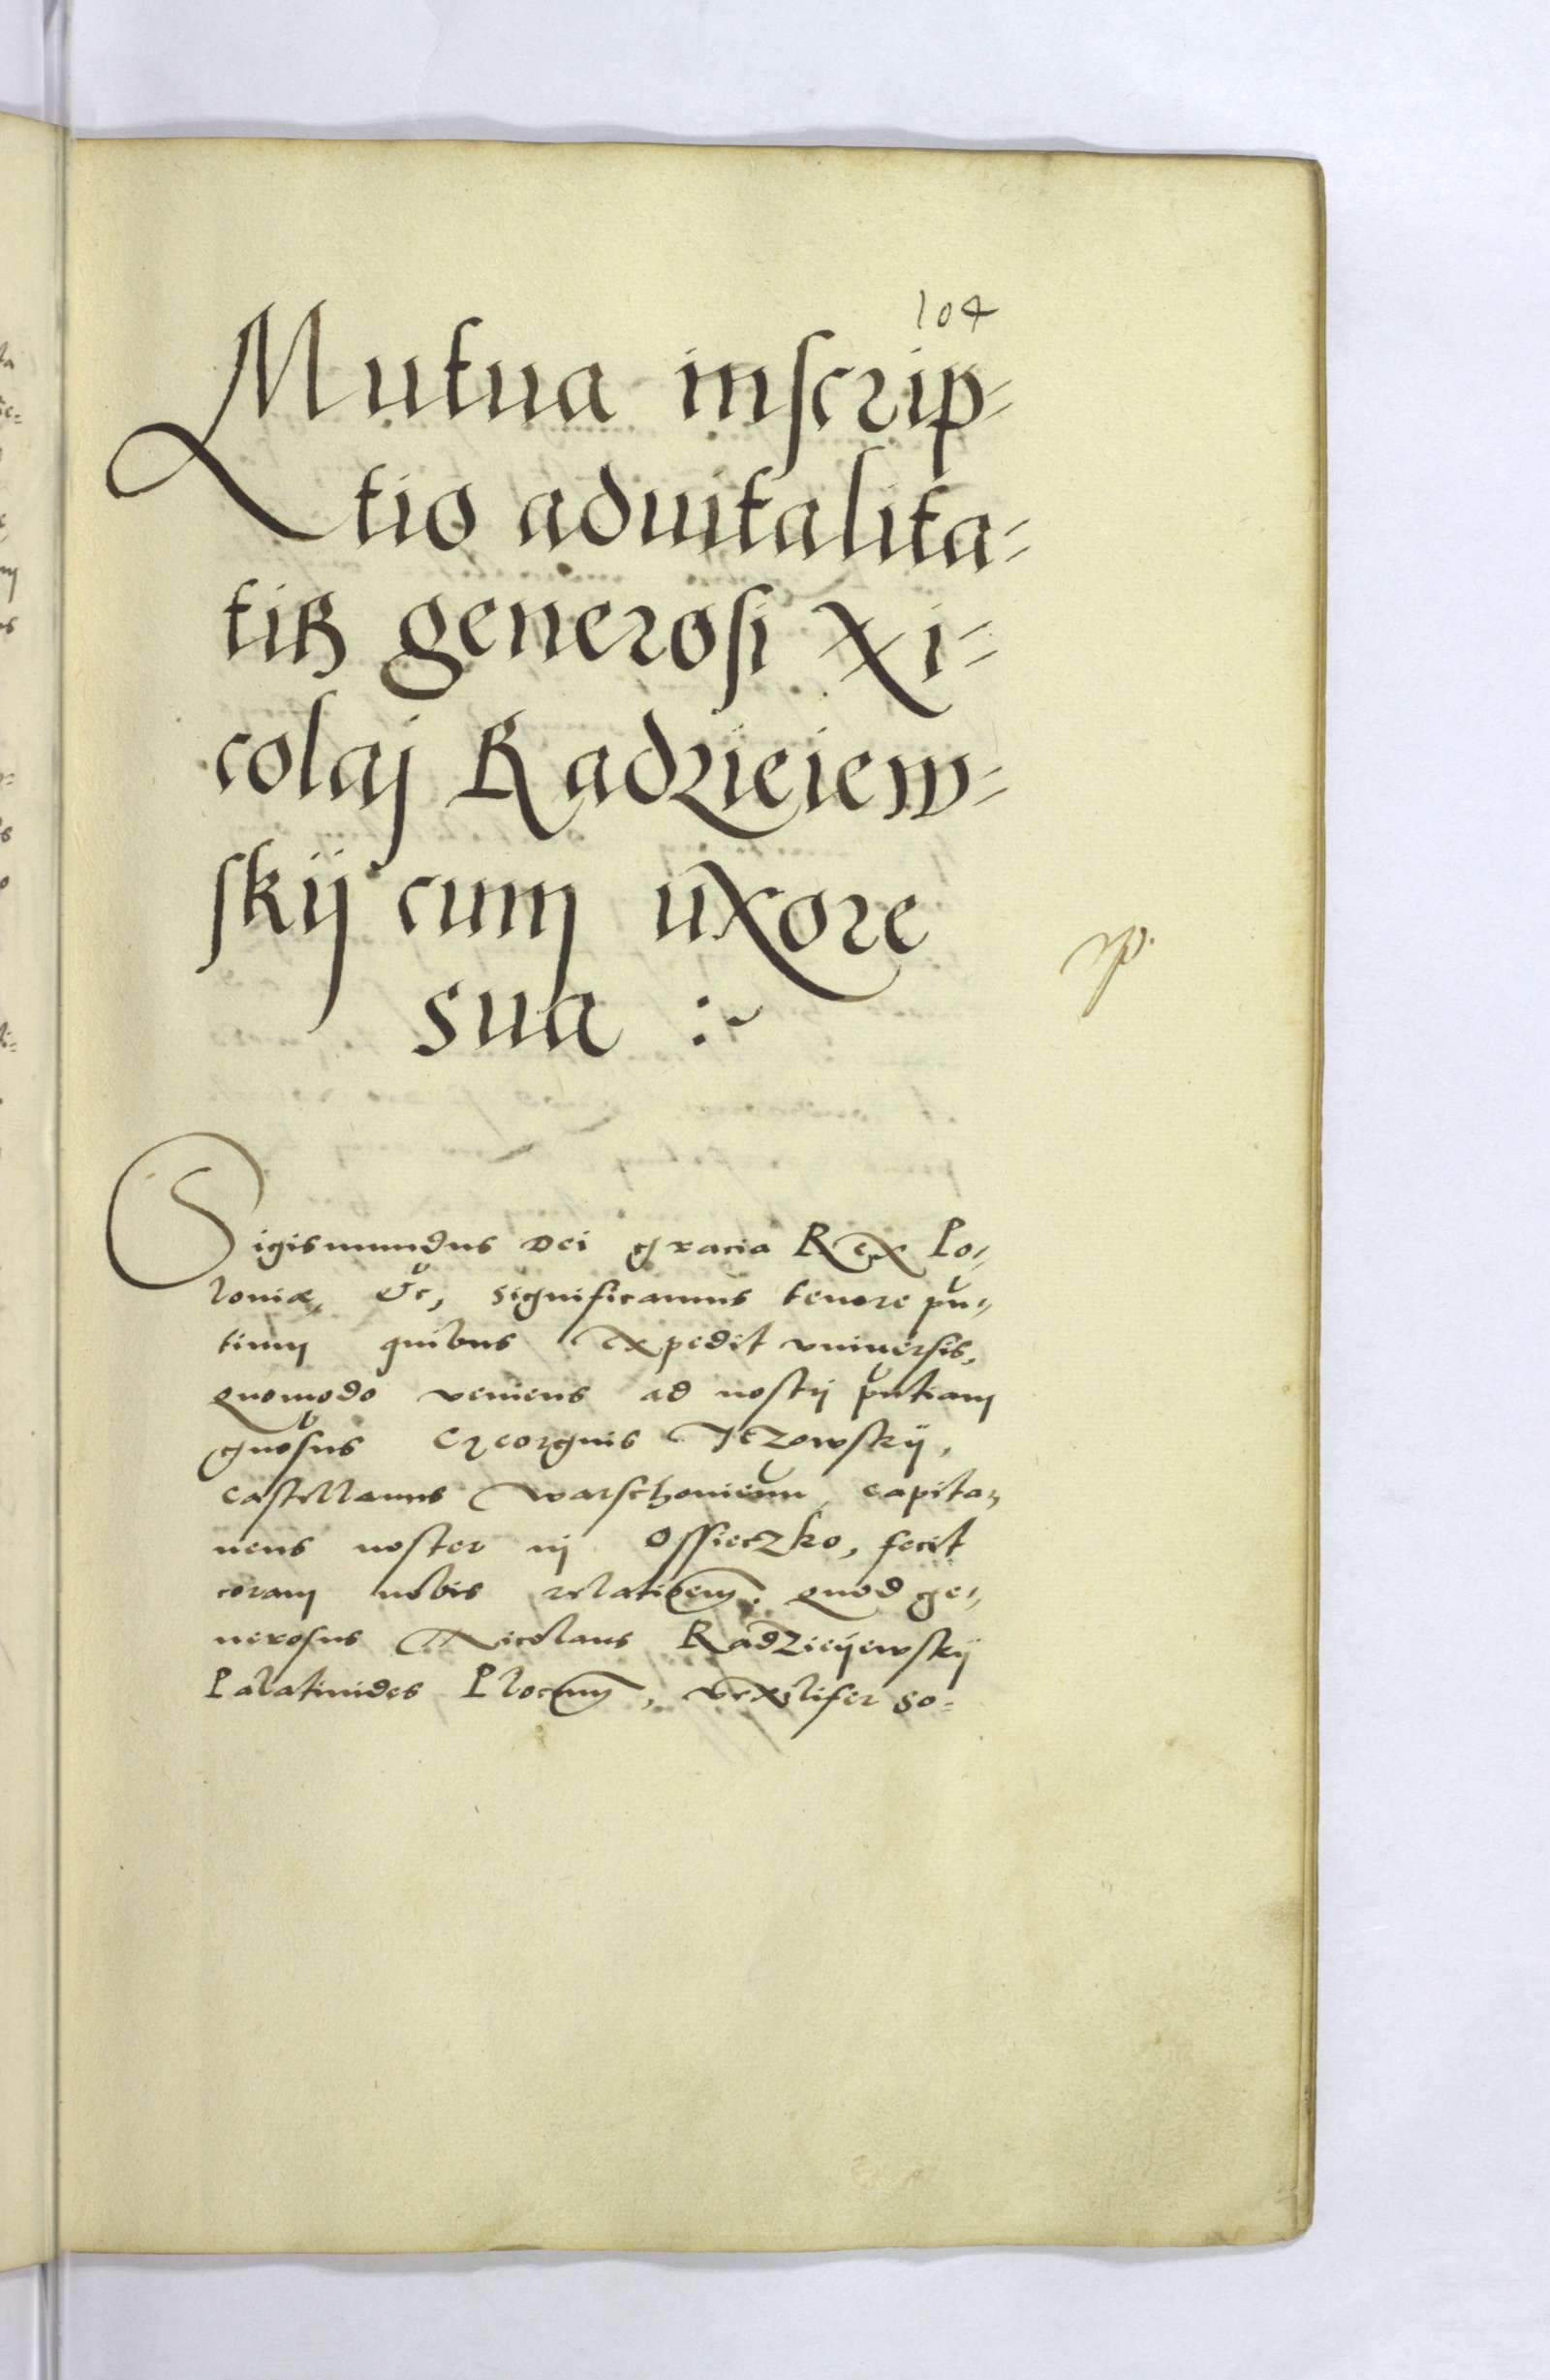 104
Mutua inscrip-
tio advitalita-
tis generosi Ni-
colaj Radzieiew-
skij cum uxore
sua :~
Sigismundus Dei gracia Rex Po-
loniæ, &c, significamus tenore pn-
tium quibus expedit vniuersis,
quomodo veniens ad nostrj pntiam
gnosus Georgius Jezowskij,
castellanus Warschouien, capita-
neus noster in Ossieczko, fecit
coram nobis relationem. quod ge-
nerosus Nicolaus Radzieijewskij
Palatinides Plocen, vexilifer so-